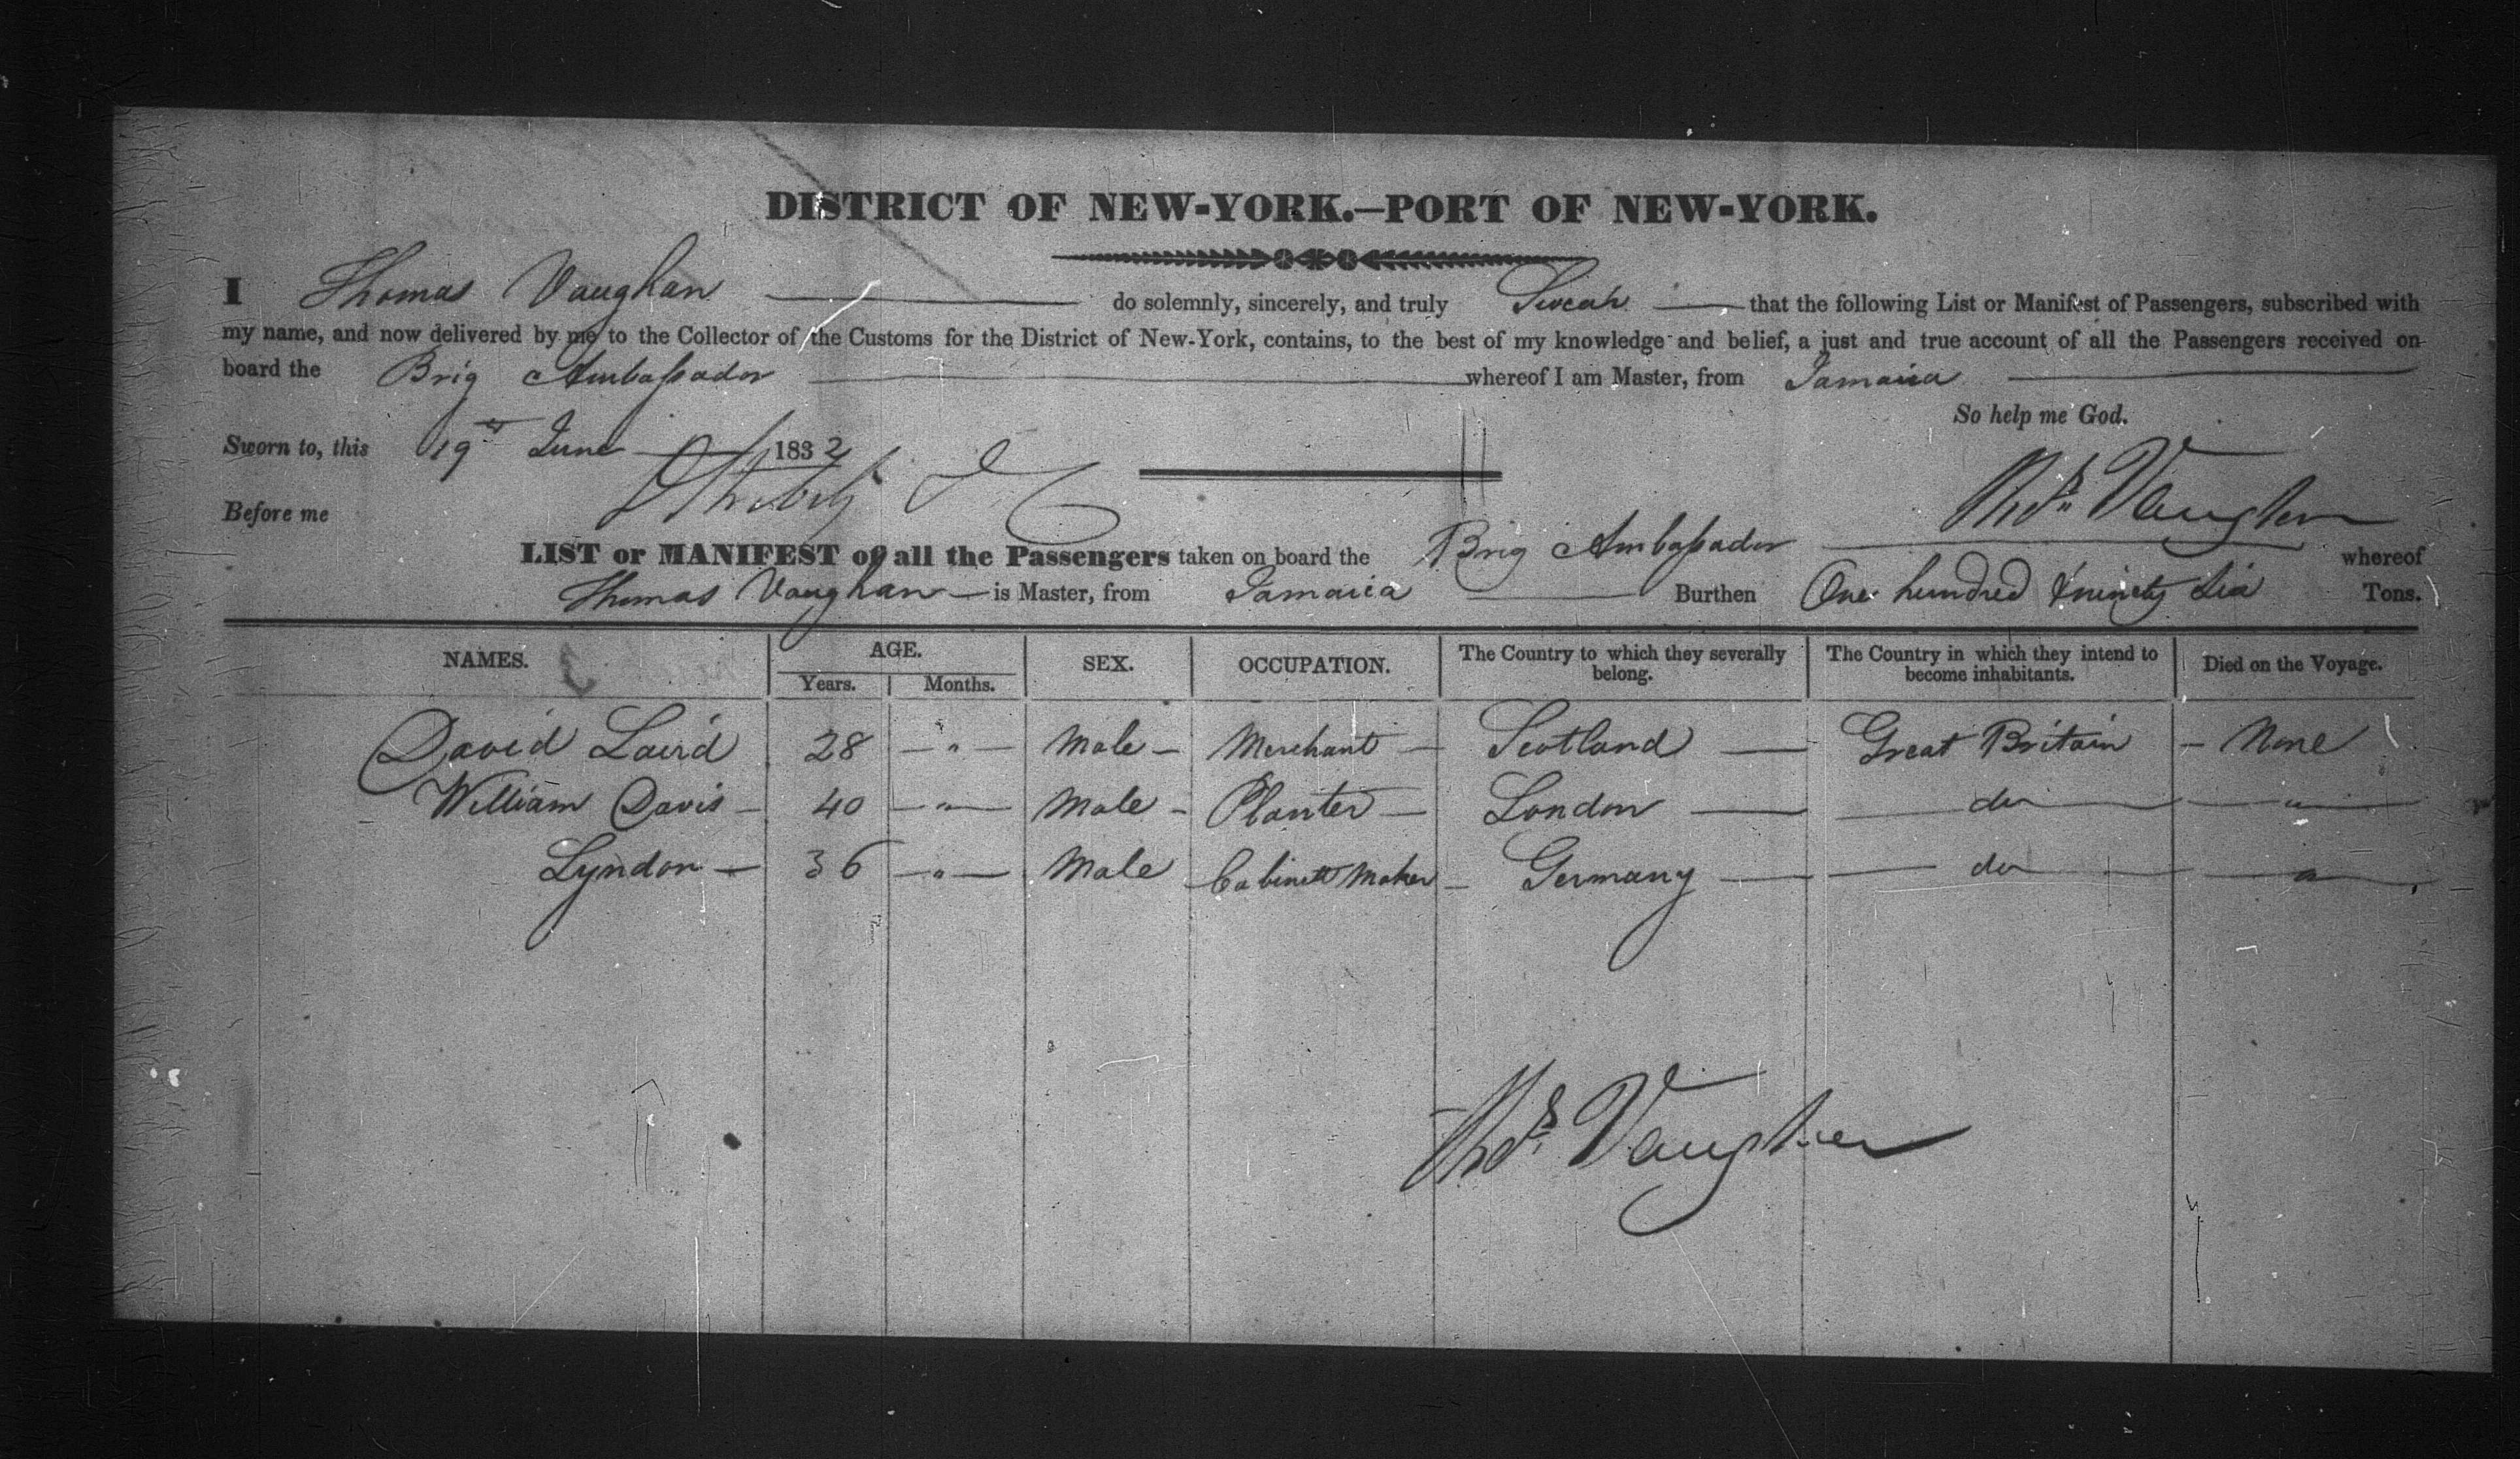 DISTRICT OF NEW-YORK.—PORT OF NEW-YORK.
I Thomas Vaughan do solemnly, sincerely, and truly Swear that the following List or Manifest of Passengers, subscribed with
my name, and now delivered by me to the Collector of the Customs for the District of New-York, contains, to the best of my knowledge and belief, a just and true account of all the Passengers received on
board the Brig Ambassador whereof I am Master, from Jamaica
So help me God.
Sworn to, this 19th June 1832
Before me
Thos. Vaughan
LIST or MANIFEST of all the Passengers taken on board the Brig Ambassador whereof
Thomas Vaughan is Master, from Jamaica Burthen One hundred & ninety Six Tons.
NAMES. AGE. SEX. OCCUPATION. The Country to which they severally belong. The Country in which they intend to become inhabitants. Died on the Voyage.
Years. Months.
David Laird 28 — " — Male — Merchant — Scotland — Great Britain — None
William Davis — 40 — " — Male — Planter — London — do — "
Lyndon — 36 — " — Male Cabinett Maker — Germany — do — "
Thos. Vaughan